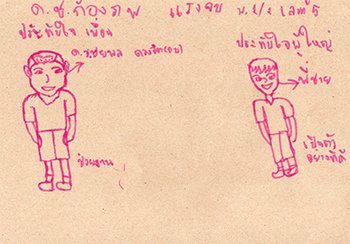 ด.ช.ก้องภพ แรงจบ ม.1/1 เลขที่ 5
ประทับใจ เพื่อน
ด.ช.ชยพล
ประทับใจผู้ใหญ่
พี่ชาย
ช่วยงาน
เป็นตัว
อย่างที่ดี